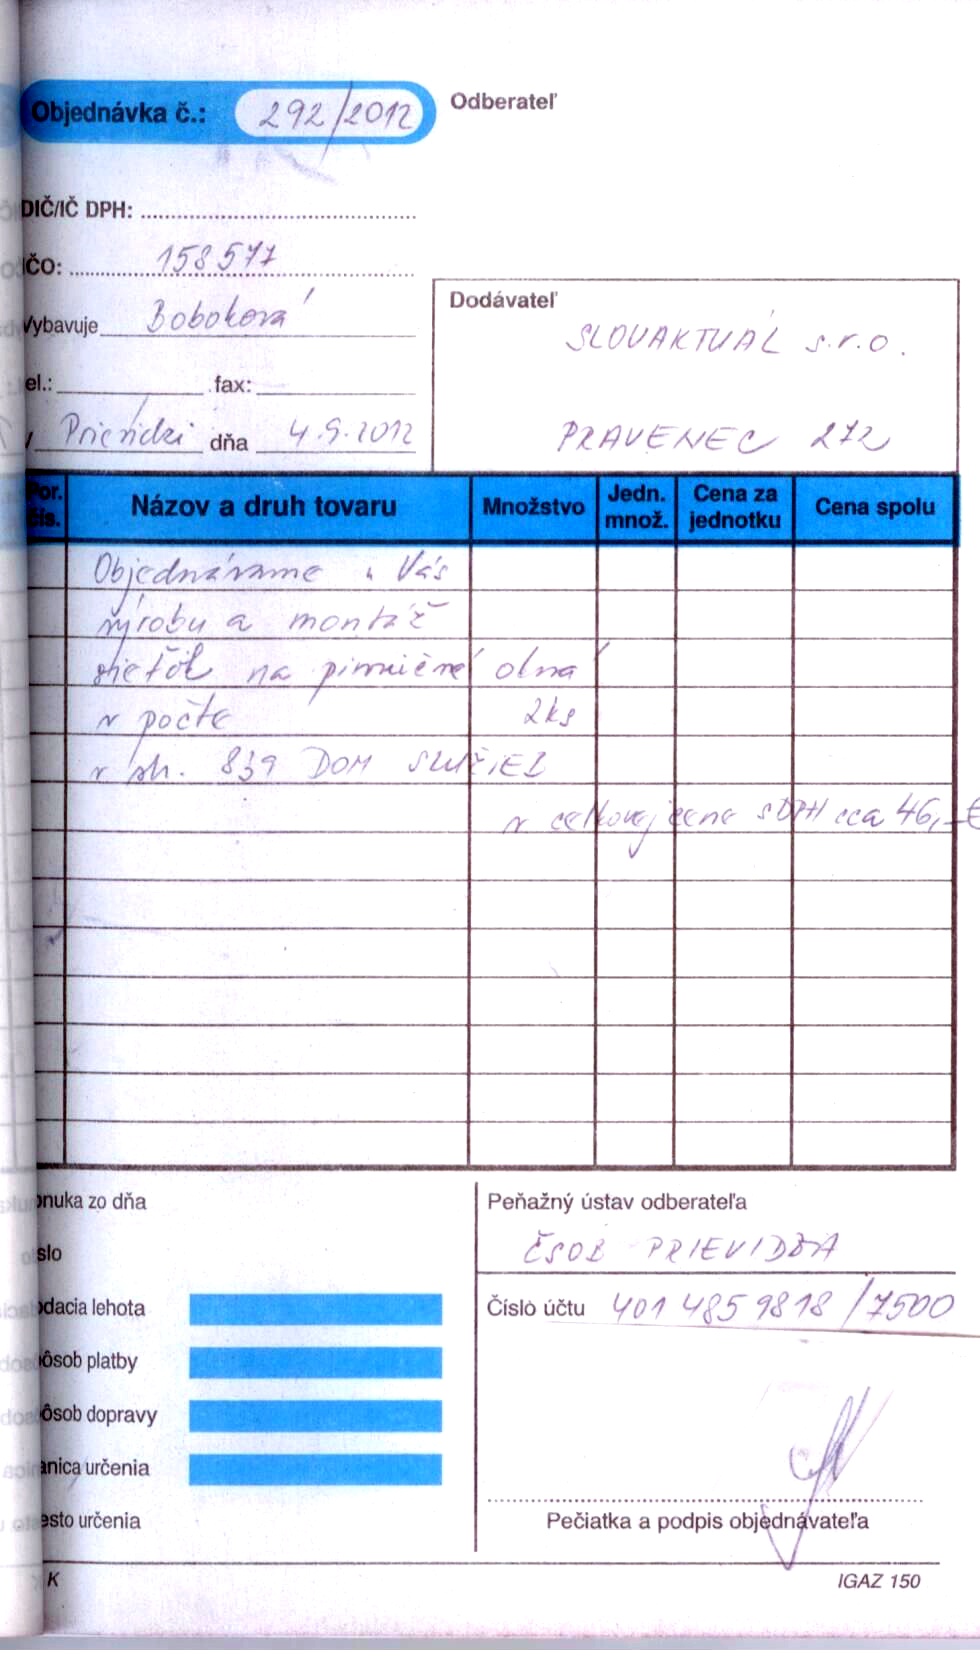 Objednávka č.: 292/2012
Odberateľ
DIČ/IČ DPH:
IČO: 158577
Vybavuje Boboková
Dodávateľ
SLOVAKTUÁL s.r.o.
el.: fax:
V Prievidzi dňa 4.9.2012
PRAVENEC 272
Por. čís.
Názov a druh tovaru
Množstvo
Jedn. množ.
Cena za jednotku
Cena spolu
Objednávame u Vás
výrobu a montáž
sieťok na pivničné okná
v počte 2ks
v sh. 839 DOM SLUŽIEB
v celkovej cene s DPH cca 46,-€
onuka zo dňa
Peňažný ústav odberateľa
slo
ČSOB PRIEVIDZA
odacia lehota
Číslo účtu 401 485 9818/7500
ôsob platby
ôsob dopravy
anica určenia
esto určenia
Pečiatka a podpis objednávateľa
K
IGAZ 150